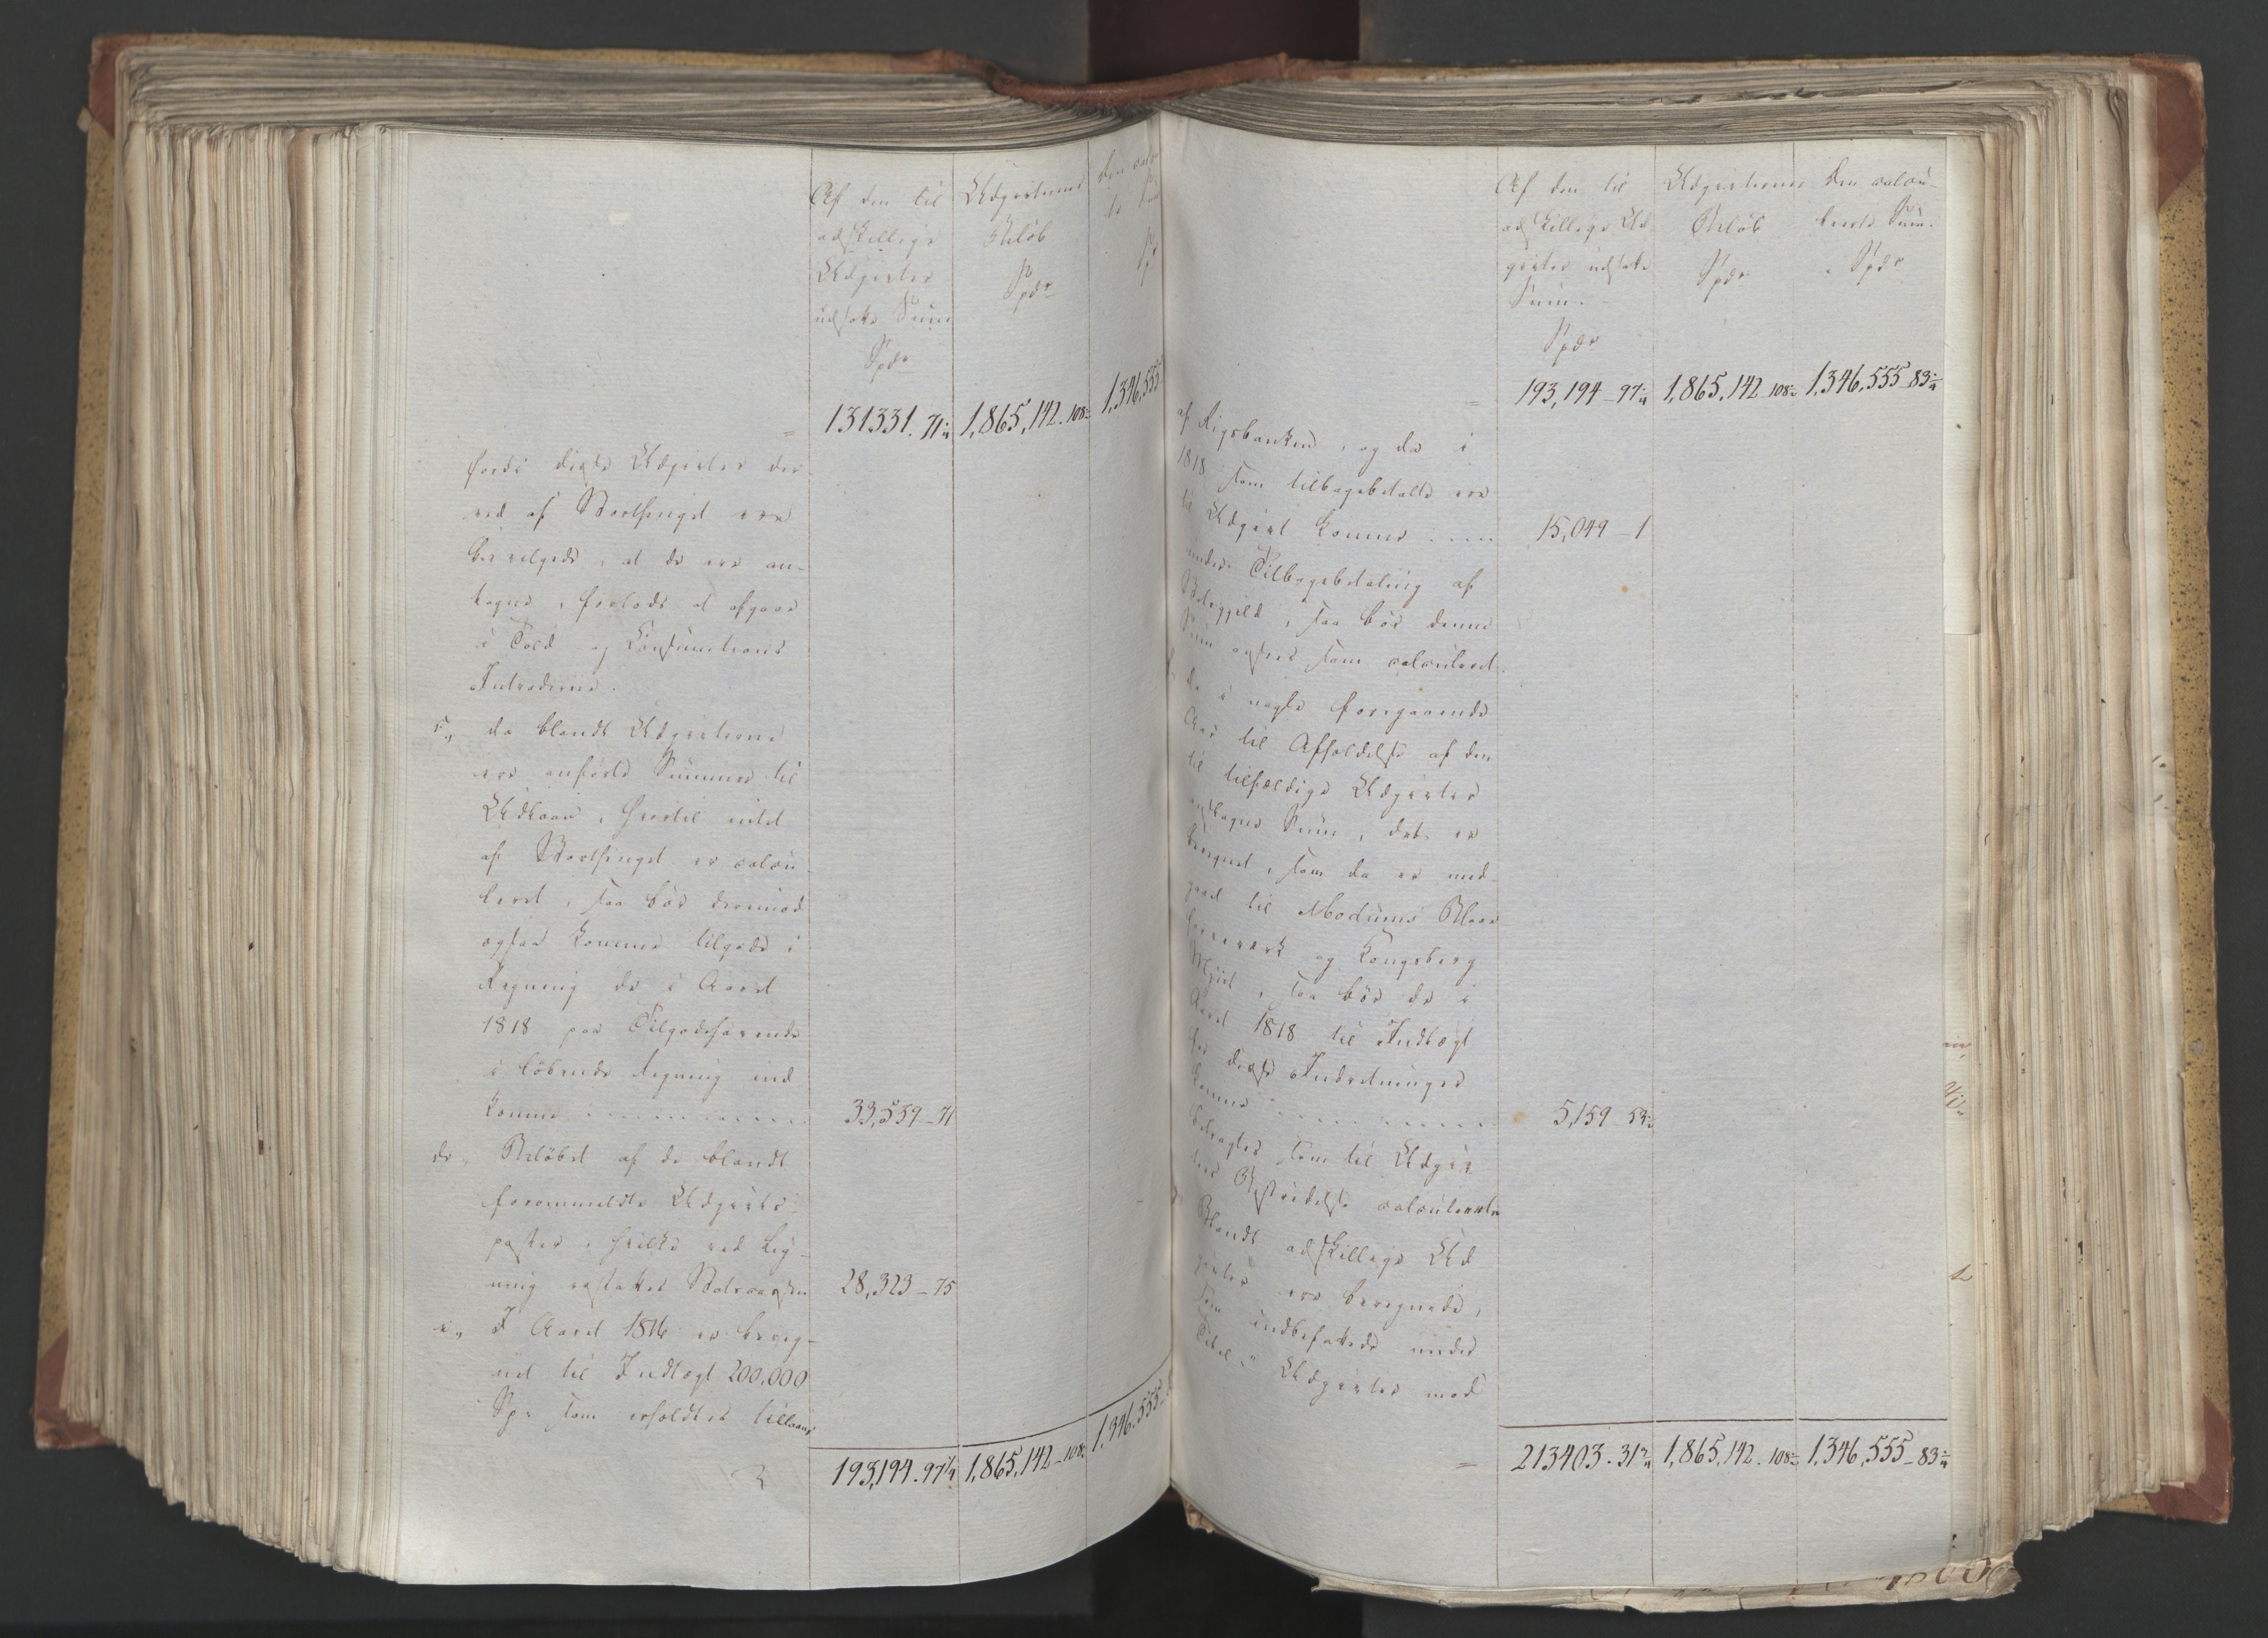 Af den til
adskillige
Udgivter
udsatte Sum
Spdr
Udgivternes
Beløb
Spdr
131331. 71
1,865,142. 108
1,346,555
fordi disse Udgivter der-
ved af Storthinget ere
bevilgede, at de ere an-
tagne, forlods at afgaae
i Told og Consumtions
Intraderne.
c., da blandt Udgivterne
ere anførte Summer til
Udlaan, hvortil intet
af Storthinget er calcu-
leret, saa bør derimod
ogsaa komme tilgode i
Regning de i Aaret
1818 paa Tilgodehavende
i løbende Regning ind
komne
33,559_71
d., Beløbet af de blandt
forommeldte Udgivts-
poster, hvilke ved Lig-
ning erstattes Statscassen
28,323_75
e., I Aaret 1816 er bereg-
net til Indtægt 200,000
Spd som erholdtes tillaans
193,194. 97
1,865,142_108
1,346,555
Af den til
adskillige Ud-
givter udsatte
Sum.
Spdr
Udgivternes
Beløb
Spdr
Den calcu-
lerte Sum.
Spdr
193,194_97
1,865,142_108
1,346,555_83
af Rigsbanken, og da i
1818 som tilbagebetalte ere
til Udgivt komne
15,049_1
under Tilbagebetaling af
Statsgjeld, saa bør denne
Sum ansees som calculeret.
da i nogle foregaaende
Aar til Afholdelse af den
til tilfældige Udgivter
antagne Sum, det er
beregnet, som da er med-
gaaet til Modums Blaae
farveværk og Kongsberg
Mynt, saa bør de i
Aaret 1818 til Indtægt
for disse Indretninger
komne
5,159_53
betragtes som til Udgiv
ters Bestridelse calculerede
Blandt adskillige Ud
givter ere beregnede,
som indbefattede under
Titel: Udgivter med
213403. 31
1,865,142. 108
1,346,555_83